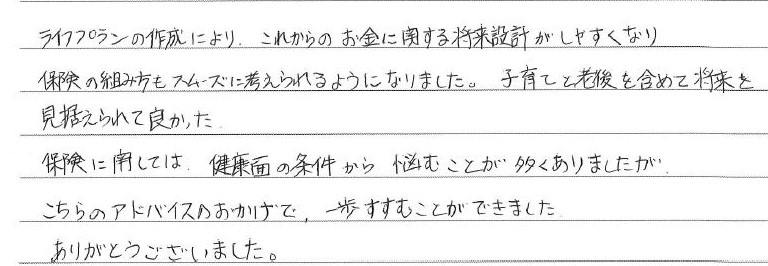 ライフプランの作成により、これからのお金に関する将来設計がしやすくなり
保険の組み方もスムーズに考えられるようになりました。子育てと老後を含めて将来を
見据えられて良かった。
保険に関しては、健康面の条件から悩むことが多くありましたが、
こちらのアドバイスのおかげで、一歩すすむことができました。
ありがとうございました。